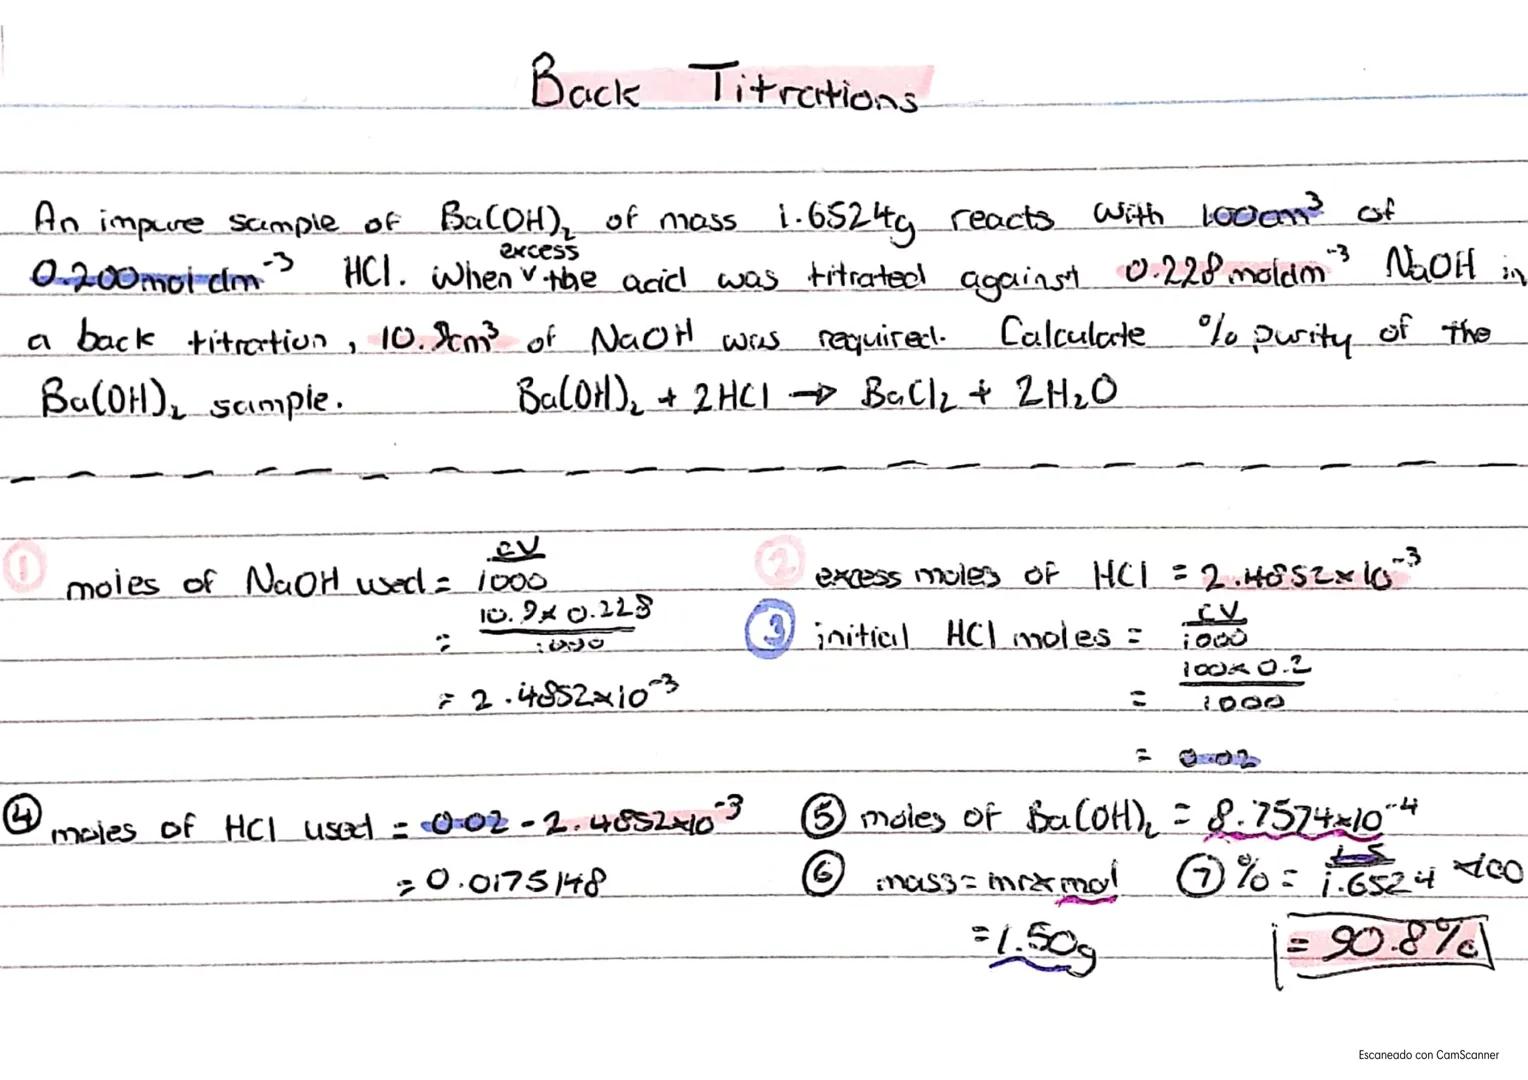 Back Titrations
An impure sample of Ba(OH)₂ of mass 1.6524g reacts with 100cm³ of
excess
0.200moldm⁻³ HCl. When ˅ the acid was titrated against 0.228moldm⁻³ NaOH in
a back titration, 10.9cm³ of NaOH was required. Calculate % purity of the
Ba(OH)₂ sample. Ba(OH)₂ + 2HCl → BaCl₂ + 2H₂O
① moles of NaOH used = CV/1000
= 10.9 x 0.228/1000
= 2.4852x10⁻³
② excess moles of HCl = 2.4852x10⁻³
③ initial HCl moles = CV/1000
= 100x0.2/1000
= 0.02
④ moles of HCl used = 0.02 - 2.4852x10⁻³
= 0.0175148
⑤ moles of Ba(OH)₂ = 8.7574x10⁻⁴
⑥ mass = mr x mol
= 1.50g
⑦ % = 1.5/1.6524 x100
= 90.8%
Escaneado con CamScanner